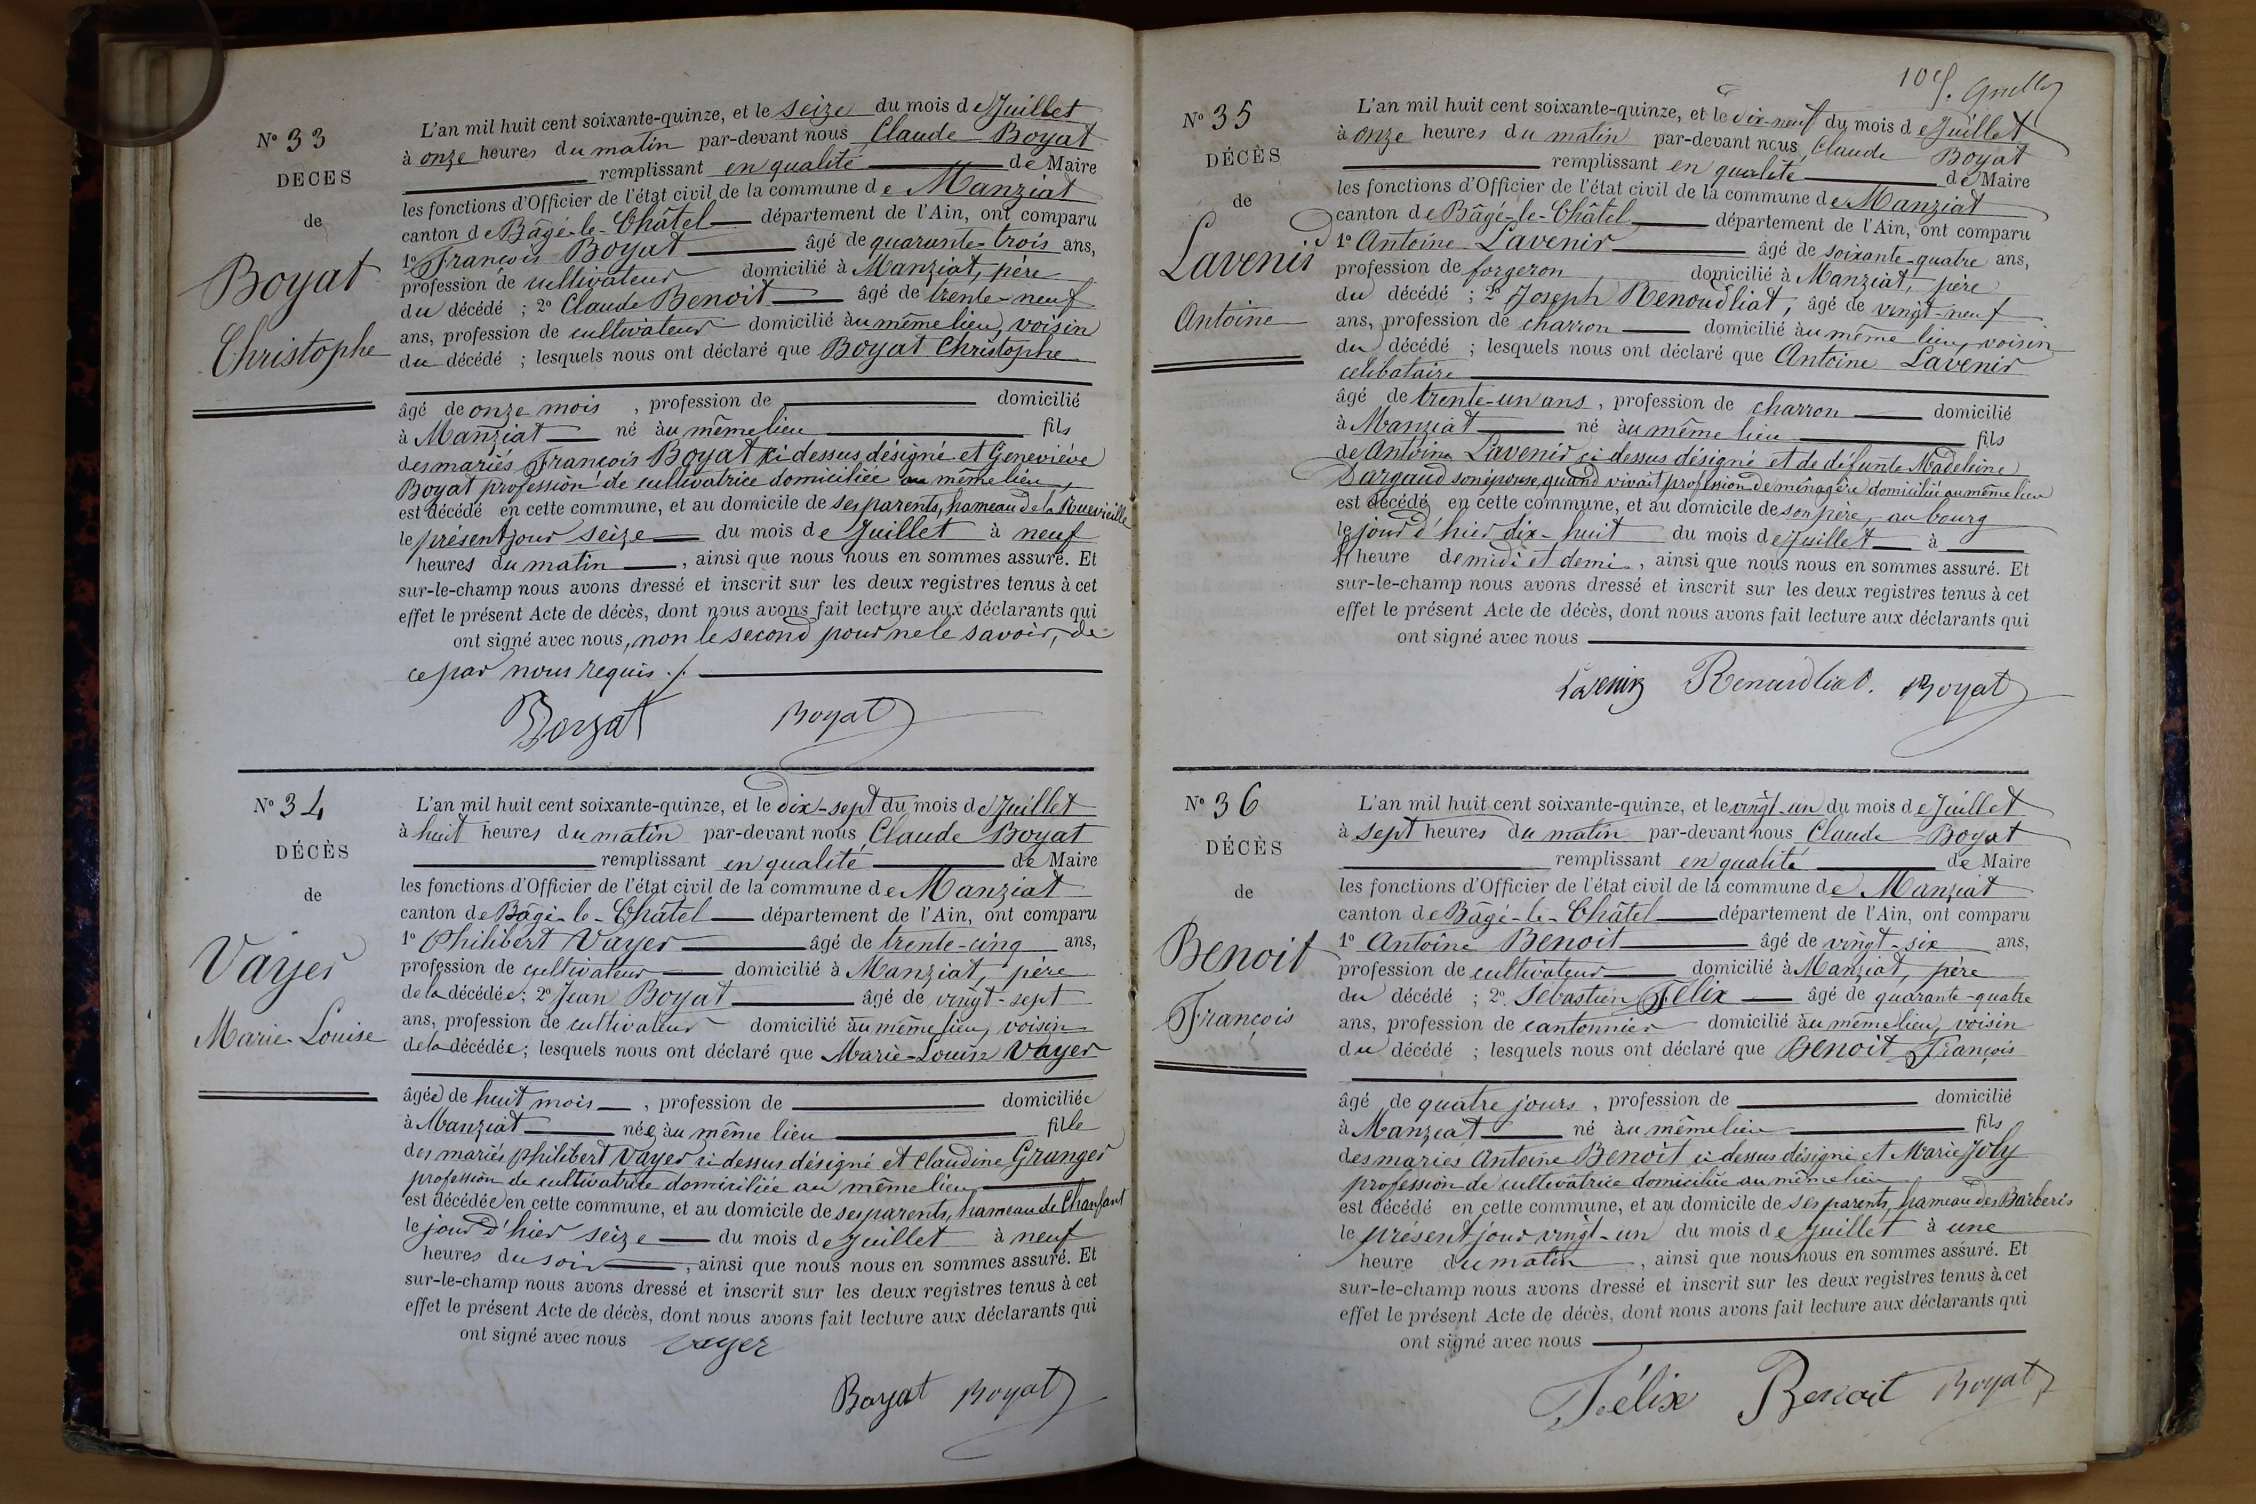 N° 33
DÉCÈS
de
Boyat
Christophe
L'an mil huit cent soixante-quinze, et le seize du mois de Juillet
à onze heures du matin par-devant nous Claude Boyat
remplissant en qualité de Maire
les fonctions d'Officier de l'état civil de la commune de Manziat
canton de Bâgé-le-Châtel département de l'Ain, ont comparu
1° François Boyat âgé de quarante-trois ans,
profession de cultivateur domicilié à Manziat, père
du décédé ; 2° Claude Benoit âgé de trente-neuf
ans, profession de cultivateur domicilié au même lieu, voisin
du décédé ; lesquels nous ont déclaré que Boyat Christophe
âgé de onze mois , profession de domicilié
à Manziat né au même lieu fils
des mariés François Boyat ci dessus désigné et Geneviève
Boyat profession de cultivatrice domiciliée au même lieu
est décédé en cette commune, et au domicile de ses parents, hameau de la Ruevieille
le présent jour seize du mois de Juillet à neuf
heures du matin , ainsi que nous nous en sommes assuré. Et
sur-le-champ nous avons dressé et inscrit sur les deux registres tenus à cet
effet le présent Acte de décès, dont nous avons fait lecture aux déclarants qui
ont signé avec nous, non le second pour ne le savoir, de
ce par nous requis ./.
Boyat Boyat
N° 34
DÉCÈS
de
Vayer
Marie-Louise
L'an mil huit cent soixante-quinze, et le dix-sept du mois de Juillet
à huit heures du matin par-devant nous Claude Boyat
remplissant en qualité de Maire
les fonctions d'Officier de l'état civil de la commune de Manziat
canton de Bâgé-le-Châtel département de l'Ain, ont comparu
1° Philibert Vayer âgé de trente-cinq ans,
profession de cultivateur domicilié à Manziat, père
de la décédée; 2° Jean Boyat âgé de vingt-sept
ans, profession de cultivateur domicilié au même lieu, voisin
de la décédée; lesquels nous ont déclaré que Marie-Louise Vayer
âgée de huit mois , profession de domiciliée
à Manziat née au même lieu fille
des mariés Philibert Vayer ci dessus désigné et Claudine Granger
profession de cultivatrice domiciliée au même lieu
est décédée en cette commune, et au domicile de ses parents, hameau de Chanfant
le jour d'hier seize du mois de Juillet à neuf
heures du soir , ainsi que nous nous en sommes assuré. Et
sur-le-champ nous avons dressé et inscrit sur les deux registres tenus à cet
effet le présent Acte de décès, dont nous avons fait lecture aux déclarants qui
ont signé avec nous Vayer
Boyat Boyat
N° 35
DÉCÈS
de
Lavenir
Antoine
L'an mil huit cent soixante-quinze, et le dix-neuf du mois de Juillet
à onze heures du matin par-devant nous Claude Boyat
remplissant en qualité de Maire
les fonctions d'Officier de l'état civil de la commune de Manziat
canton de Bâgé-le-Châtel département de l'Ain, ont comparu
1° Antoine Lavenir âgé de soixante-quatre ans,
profession de forgeron domicilié à Manziat, père
du décédé ; 2° Joseph Renoudliat, âgé de vingt-neuf
ans, profession de charron domicilié au même lieu, voisin
du décédé ; lesquels nous ont déclaré que Antoine Lavenir
célibataire
âgé de trente-un ans , profession de charron domicilié
à Manziat né au même lieu fils
de Antoine Lavenir ci dessus désigné et de défunte Madeleine
Dargaud son épouse, quand vivait profession de ménagère domiciliée au même lieu
est décédé en cette commune, et au domicile de son père, au bourg
le jour d'hier dix-huit du mois de Juillet à
heure de midi et demi , ainsi que nous nous en sommes assuré. Et
sur-le-champ nous avons dressé et inscrit sur les deux registres tenus à cet
effet le présent Acte de décès, dont nous avons fait lecture aux déclarants qui
ont signé avec nous
Lavenir Renaudliat. Boyat
N° 36
DÉCÈS
de
Benoit
François
L'an mil huit cent soixante-quinze, et le vingt-un du mois de Juillet
à sept heures du matin par-devant nous Claude Boyat
remplissant en qualité de Maire
les fonctions d'Officier de l'état civil de la commune de Manziat
canton de Bâgé-le-Châtel département de l'Ain, ont comparu
1° Antoine Benoit âgé de vingt-six ans,
profession de cultivateur domicilié à Manziat, père
du décédé ; 2° Sébastien Félix âgé de quarante-quatre
ans, profession de cantonnier domicilié au même lieu, voisin
du décédé ; lesquels nous ont déclaré que Benoit François
âgé de quatre jours , profession de domicilié
à Manziat né au même lieu fils
des mariés Antoine Benoit ci dessus désigné et Marie Joly
profession de cultivatrice domiciliée au même lieu
est décédé en cette commune, et au domicile de ses parents, hameau des Barberis
le présent jour vingt-un du mois de Juillet à une
heure du matin , ainsi que nous nous en sommes assuré. Et
sur-le-champ nous avons dressé et inscrit sur les deux registres tenus à cet
effet le présent Acte de décès, dont nous avons fait lecture aux déclarants qui
ont signé avec nous
Félix Benoit Boyat